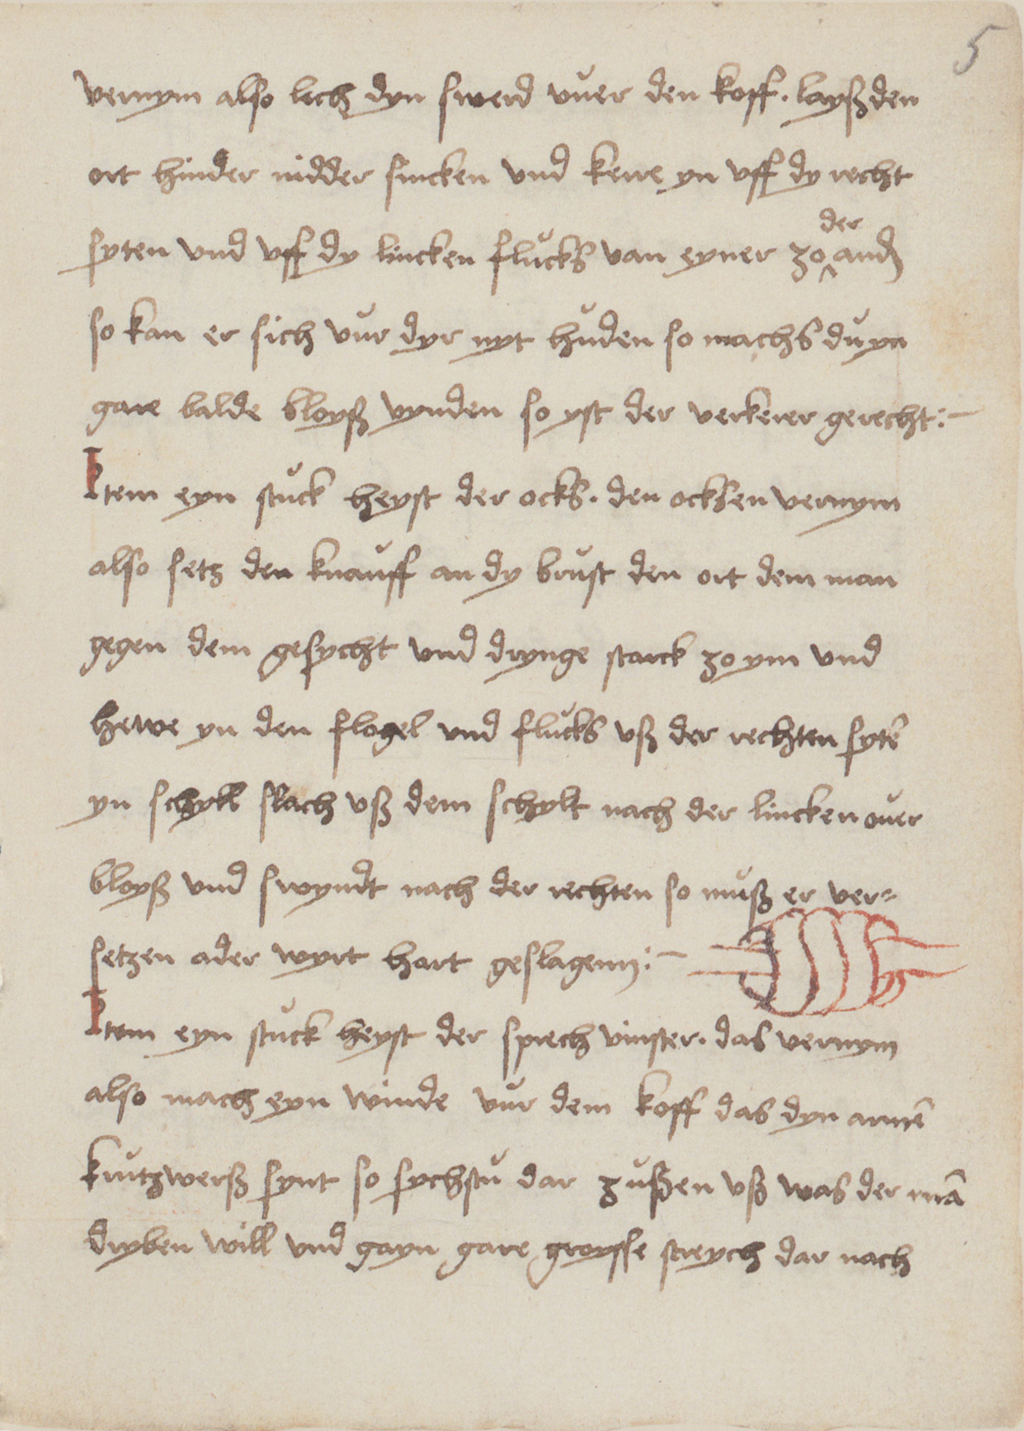 5
vernym also lech dyn swerd vůer den koff. layß den
ort hinder nidder sincken vnd kerre yn vff dy recht
syten vnd vff dy lincken flůcks van eyner zo der and
so kan er sich vůr dyr nyt hůden so machs dů yn
gare balde bloyß vynden so yst der verkerer gerecht :-
Item eyn stůck heyst der ocks. den ocksen vernym
also setz den knauff an dy brůst den ort dem man
gegen dem gesycht vnd drynge starck zo ym vnd
hewe yn den flogel vnd flůcks vß der rechten sytē
yn schylt slach vß dem schylt nach der lincken ouer
bloyß vnd swyndt nach der rechten so můß er ver=
setzen ader wyrt hart geslagenn :-
Item eyn stůck heyst der sprech vinster. das vernym
also mach eyn winde vůr dem koff das dyn armē
krůtzwerß synt so sychstů dar zůßen vß was der mā
dryben will vnd gayn gare groysse streych dar nach